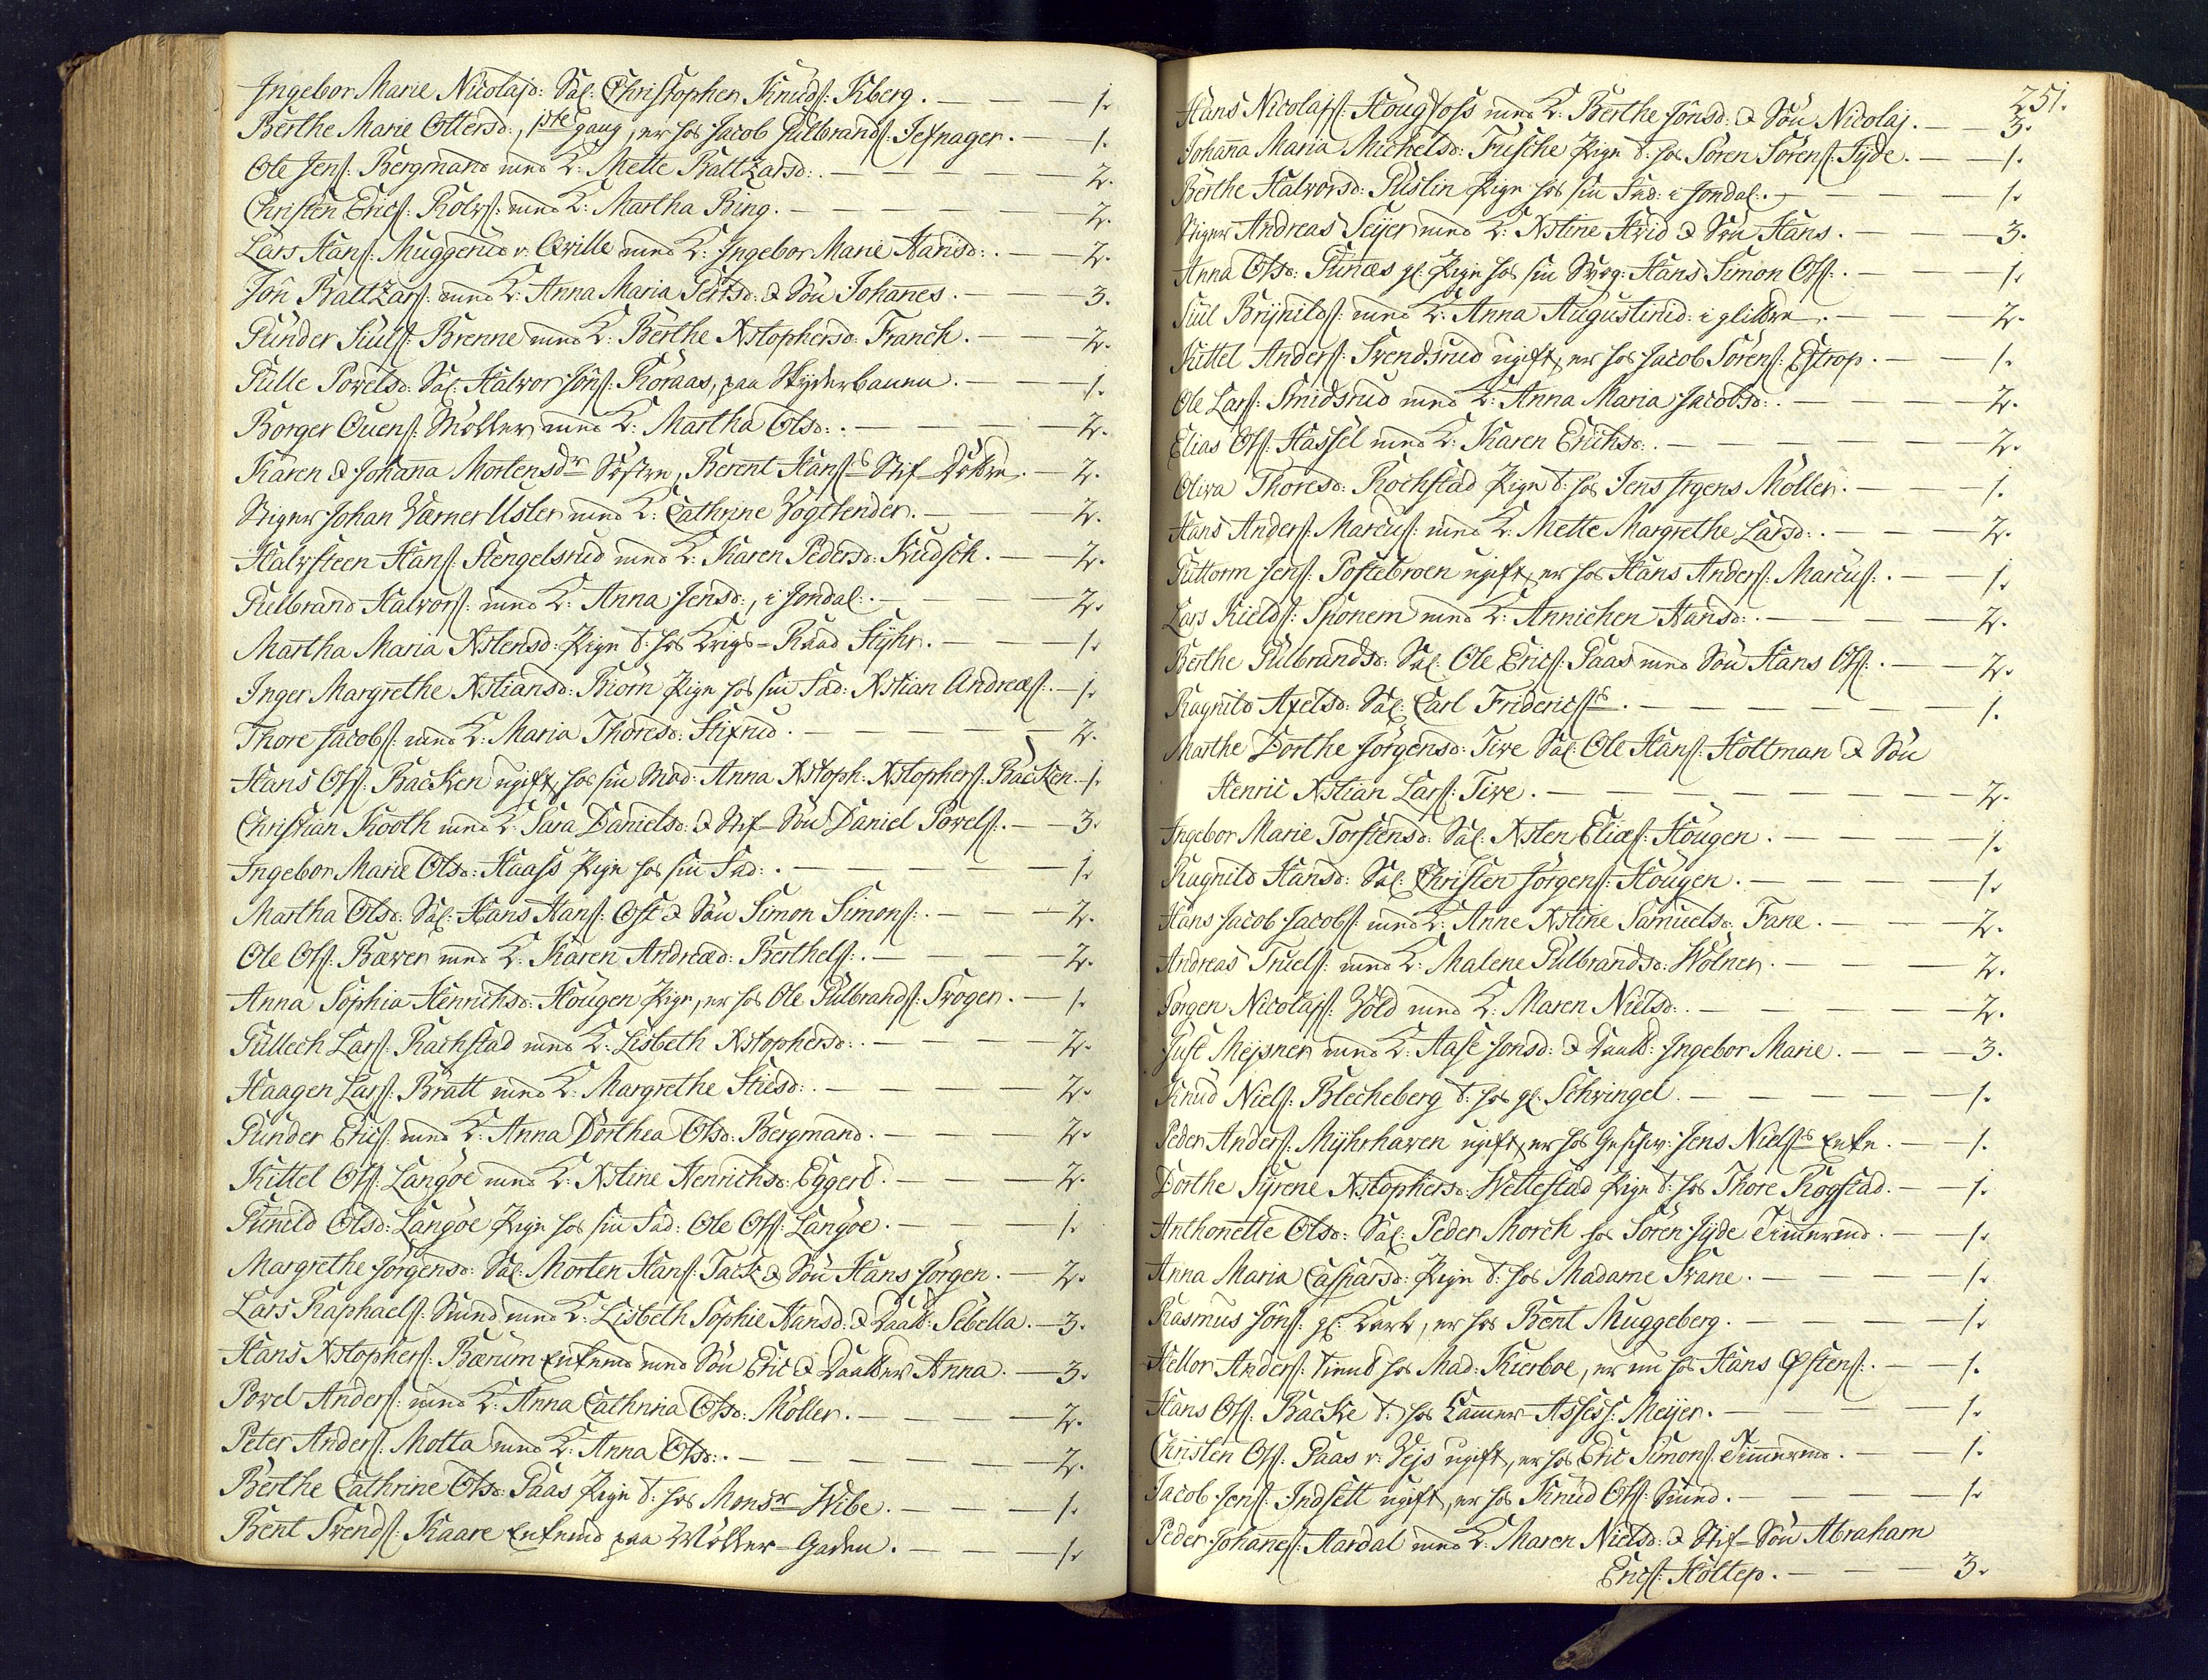 Ingebor Marie Nicolajd: Sal: Christopher Knuds: Kberg. — — — 1.
Berthe Marie Ottersd:, 1ste gang, er hos Jacob Gulbrands: Jesnager. — 1.
Ole Jens: Bergmand med K: Mette Baltzarsd: . — — — 2.
Christen Erics: Rolvs: med K: Martha Bing. — — — 2.
Lars Hans: Muggerud v: Ceville med K: Ingebor Marie Hansd: . — 2.
Jôn Baltzars: med K: Anna Maria Gertsd: & Sön Johanes. — — 3.
Gunder Siuls: Brenne med K: Berthe Xstophersd: Franck. — — 2.
Gulle Povelsd: Sal: Halvor Jôns: Roraas, paa Skyderbanen. — — 1.
Borger Ouens: Möller med K: Martha Olsd: . — — — 2.
Karen & Johana Mortensdr Söstre, Berent Hanss Stif-Döttre. — 2.
Stiger Johan Værner Usler med K: Cathrine Vogtlender. — — 2.
Halvsteen Hans: Stengelsrud med K: Karen Pedersd: Kudsck. — 2.
Gulbrand Halvors: med K: Anna Jensd:, i Jondal: . — — 2.
Martha Maria Xstensd: Pige t: hos Krigs-Raad Stÿhr. — — 1.
Inger Margrethe Xstiansd: Biörn Pige hos sin Fad: Xstian Andreæs: . — 1.
Thore Jacobs: med K: Maria Thoresd: Stifrud. — — — 2.
Hans Ols: Backen ugift, hos sin Mod: Anna Xstoph: Xstophers: Backen. — 1.
Christian Kooth med K: Sara Danielsd: & Stif-Sön Daniel Povels: . — 3.
Ingebor Marie Olsd: Haass Pige hos sin Fad: . — — — 1.
Martha Olsd: Sal: Hans Hans: Ost & Sön Simon Simons: . — — 2.
Ole Ols: Bæver med K: Karen Andreæd: Berthels: . — — — 2.
Anna Sophia Henrichsd: Hougen Pige, er hos Ole Gulbrands: Skogen. — 1.
Gullech Lars: Rachstad med K: Lisbeth Xstophersd: . — — 2.
Haagen Lars: Bratt med K: Margrethe Stiesd: . — — — 2.
Gunder Erics: med K: Anna Dorthea Olsd: Bergmand. — — 2.
Kittel Ols: Langöe med K: Xstine Henrichsd: Eggert. — — 2.
Gunild Olsd: Langöe Pige hos sin Fad: Ole Ols: Langöe. — — 1.
Margrethe Jörgensd: Sal: Morten Hans: Tack & Sön Hans Jörgen. — 2.
Lars Raphaels: Smed med K: Lisbeth Sophie Hansd: & Daatt: Sebella. — 3.
Hans Xstophers: Bærum Enkemd med Sön Eric & Daatter Anna. — 3.
Povel Anders: med K: Anna Cathrina Olsd: Möller. — — 2.
Peter Anders: Motta med K: Anna Olsd: . — — — 2.
Berthe Cathrine Olsd: Gaas Pige t: hos Monsr Wibe. — — 1.
Bent Svends: Kaare Enkemd paa Möller-Gaden. — — 1.
251.
Hans Nicolajs: Hougfoss med K: Berthe Jônsd: & Sön Nicolaj. — — 3.
Johana Maria Michelsd: Fusche Pige t: hos Sören Sörens: Jÿde. — — 1.
Berthe Halvorsd: Puslin Pige hos sin Fad: i Jondal: . — — 1.
Stiger Andreas Seÿer med K: Xstine Hvid & Sön Hans. — — 3.
Anna Olsd: Gunæs gl: Pige hos sin Svog: Hans Simon Ols: . — — 1.
Siul Brÿnilds: med K: Anna Augustinid: i glitten. — — 2.
Kittel Anders: Svendsrud ugift, er hos Jacob Sörens: Estrop. — — 1.
Ole Lars: Smidsrud med K: Anna Maria Jacobsd: . — — 2.
Elias Ols: Hassel med K: Karen Erichsd: . — — — 2.
Oliva Thoresd: Rochstad Pige t: hos Jens Irgens Möller. — — 1.
Hans Anders: Marcus: med K: Mette Margrethe Larsd: . — — 2.
Guttorm Jens: Postebroen ugift, er hos Hans Anders: Marcus: . — 1.
Lars Kields: Skonem med K: Annichen Hansd: . — — — 2.
Berthe Gulbrandsd: Sal: Ole Erics: Gaas med Sön Hans Ols: . — — 2.
Ragnild Axelsd: Sal: Carl Fridericss . — — — — 1.
Marthe Dorthe Jörgensd: Tive Sal: Ole Hans: Holtman & Sön
Henric Xstian Lars: Tive. — — — — — 2.
Ingebor Marie Torstensd: Sal: Xsten Eliæs: Hougen. — — 1.
Ragnild Hansd: Sal: Christen Jörgens: Hougen. — — — 1.
Hans Jacob Jacobs: med K: Anne Xstine Samuelsd: Fane. — — 2.
Andreas Truels: med K: Malene Gulbrandsd: Wölner. — — 2.
Jörgen Nicolajs: Vold med K: Maren Nielsd: . — — — 2.
Just Mejsner med K: Aase Jonsd: & Daatt: Ingebor Marie. — — 3.
Knud Niels: Blecheberg t: hos gl: Schvingel. — — — 1.
Peder Anders: Mÿhrhaven ugift, er hos Geschw: Jens Nielss Enke. — 1.
Dorthe Sÿrene Xstophersd: Wettestad Pige t: hos Thore Rogstad. — 1.
Anthonette Olsd: Sal: Peder Morch hos Sören Jÿde Timermd. — — 1.
Anna Maria Caspersd: Pige t: hos Madame Svane. — — 1.
Rasmus Jôns: gl: Karl, er hos Bent Muggeberg. — — — 1.
Hellor Anders: tient hos Mad: Kierboe, er nu hos Hans Østens: . — 1.
Hans Ols: Backe t: hos Camer-Assess: Meÿer. — — — 1.
Christen Ols: Gaas v: Vejs ugift, er hos Eric Simons: Timermd. — — 1.
Jacob Jens: Indsett ugift, er hos Knud Ols: Smed. — — — 1.
Peder Johanes: Aardal med K: Maren Nielsd: & Stif-Sön Abraham
Erics: Holtep. — — 3.